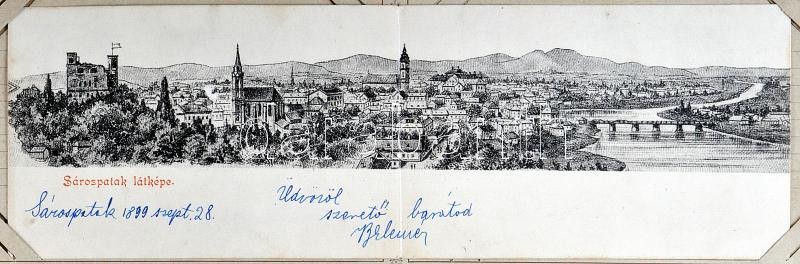 Sárospatak látképe.
Sárospatak 1899 szept. 28.
Üdvözöl
szerető barátod